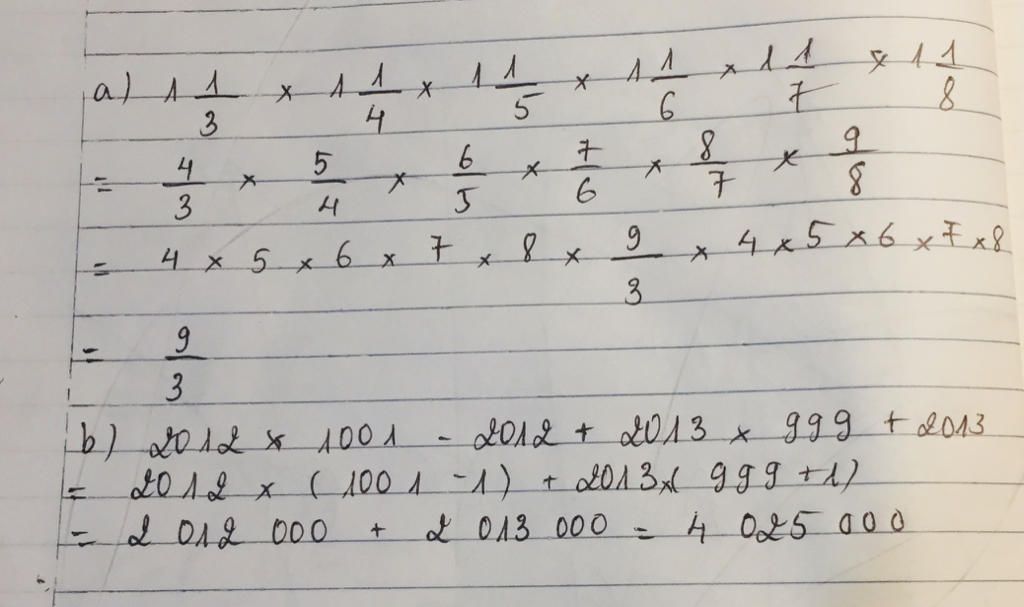 a) 1 1/3 × 1 1/4 × 1 1/5 × 1 1/6 × 1 1/7 × 1 1/8
= 4/3 × 5/4 × 6/5 × 7/6 × 8/7 × 9/8
= 4 × 5 × 6 × 7 × 8 × 9/3 × 4 × 5 × 6 × 7 × 8
= 9/3
b) 2012 × 1001 - 2012 + 2013 × 999 + 2013
= 2012 × (1001 - 1) + 2013 × (999 + 1)
= 2 012 000 + 2 013 000 = 4 025 000